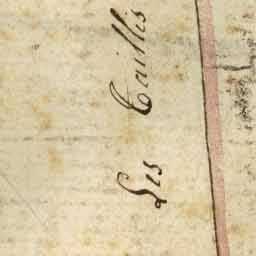 Les Taillis